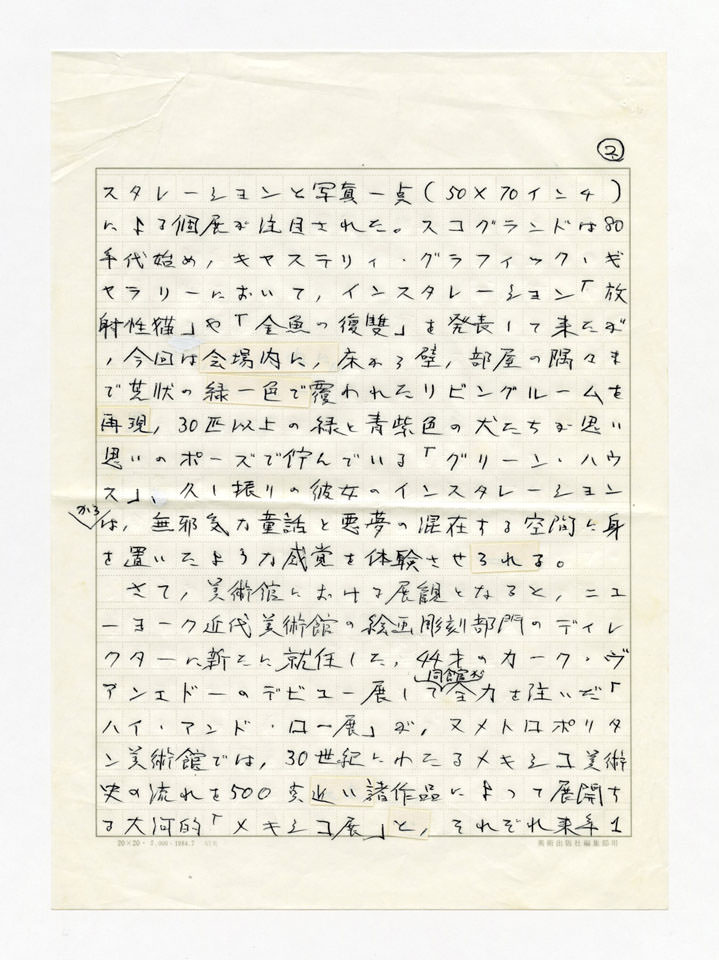 ②
スタレーションと写真一点(50×70インチ)
による個展が注目された。スコグランドは80
年代始め,キャステリィ・グラフィック・ギ
ャラリーにおいて,インスタレーション「放
射性猫」や「金魚の復讐」を発表して来たが
,今回は会場内に,床から壁,部屋の隅々ま
で芝状の緑一色で覆われたリビングルームを
再現,30匹以上の緑と青紫色の犬たちが思い
思いのポーズで佇んでいる「グリーン・ハウ
ス」、久し振りの彼女のインスタレーション
からは,無邪気な童話と悪夢の混在する空間に身
を置いたような感覚を体験させられる。
さて,美術館における展観となると,ニュ
ーヨーク近代美術館の絵画彫刻部門のディレ
クターに新たに就任した,44才のカーク・ヴ
アンエドーのデビュー展して同館が全力を注いだ「
ハイ・アンド・ロー展」が,又メトロポリタ
ン美術館では,30世紀にわたるメキシコ美術
史の流れを500点近い諸作品によって展開す
る大河的「メキシコ展」と,それぞれ来年1
20×20・ 1984.7
美術出版社編集部用